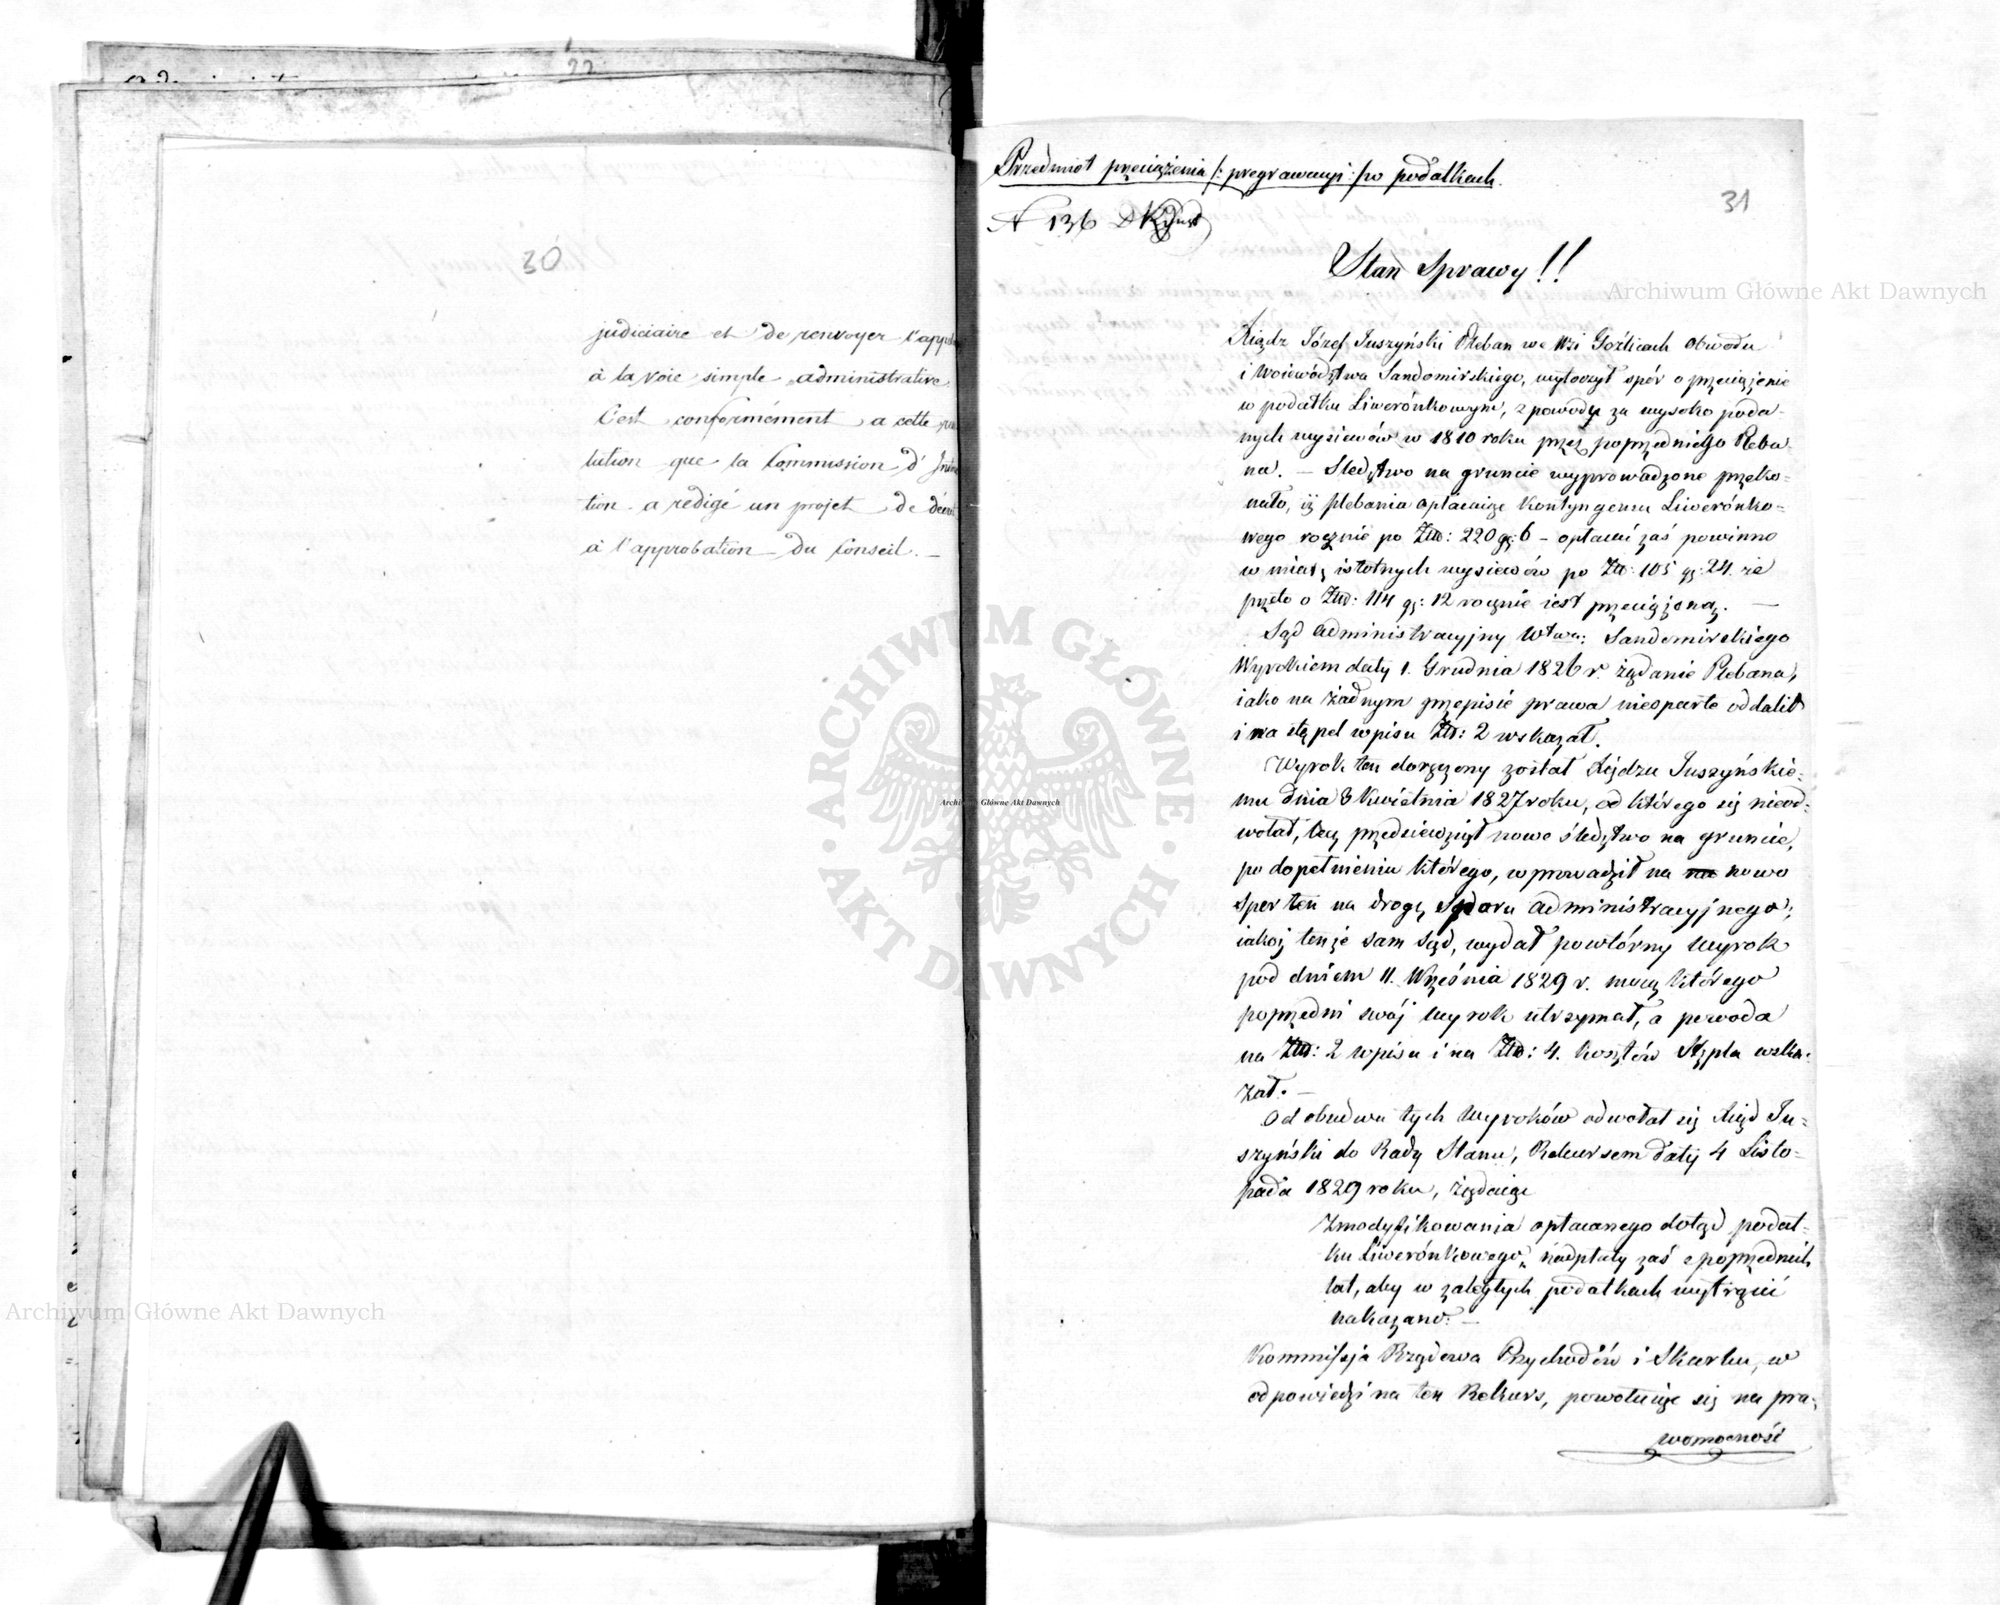 30
judiciaire et de renvoyer l'app
à la voie simple administrative.
C'est conformément a cette
lution que la Commission d'
tion a redigé un projet de
à l'approbation du Conseil. —
Przedmiot przeciążenia /: pregrawacyi :/ w podatkach.
31
N 136
Stan Sprawy!!
Xiądz Józef Juszyński Pleban we Wsi Goźlicach Obwodu
i Woiewództwa Sandomirskiego, wytoczył spór o przeciążenie
w podatku Liwerónkowym, z powodu za wysoko poda-
nych wysiewów w 1810 roku przez poprzedniego Pleba-
na. — Sledztwo na gruncie wyprowadzone przeko-
nało, iż plebania opłacaiąc Kontyngensu Liwerónko-
wego rocznie po Złt: 220 gr: 6 — opłacać zaś powinno
w miarę istotnych wysiewów po Złt: 105 gr: 24. że
przeto o Złt: 114 gr: 12 rocznie iest przeciążoną. —
Sąd Administracyjny Wtwa: Sandomirskiego
Wyrokiem daty 1. Grudnia 1826 r. żądanie Plebana,
iako na żadnym przepisie prawa niesparte oddalił
i na stępel wpisu Złt: 2 wskazał.
Wyrok ten doręczony został Xiędzu Juszyńskie-
mu dnia 8 Kwietnia 1827 roku, od którego się nieod-
wołał, lecz przedsiewziął nowe śledztwo na gruncie,
po dopełnieniu którego, wprowadził na nowo
spor ten na drogę Sądową administracyjnego;
iakoż tenże sam Sąd, wydał powtórny wyrok
pod dniem 11. Września 1829 r. mocą którego
poprzedni swój wyrok utrzymał, a powoda
na Złt: 2 wpisu i na Złt: 4. kosztów Stępla wska-
zał. —
Od obudwu tych Wyroków odwołał się Xiąd Ju-
szyński do Rady Stanu, Rekursem daty 4 Listo-
pada 1829 roku, żądaiąc
Zmodyfikowania opłacanego dotąd podat-
ku Liwerónkowego, nadpłaty zaś z poprzednich
lat, aby w zaległych podatkach wytrącić
nakazano. —
Kommissja Rządowa Przychodów i Skarbu, w
odpowiedzi na ten Rekurs, powołuiąc się na pra-
womocność
Archiwum Główne Akt Dawnych
Archiwum Główne Akt Dawnych
Archiwum Główne Akt Dawnych
ARCHIWUM GŁÓWNE
AKT DAWNYCH